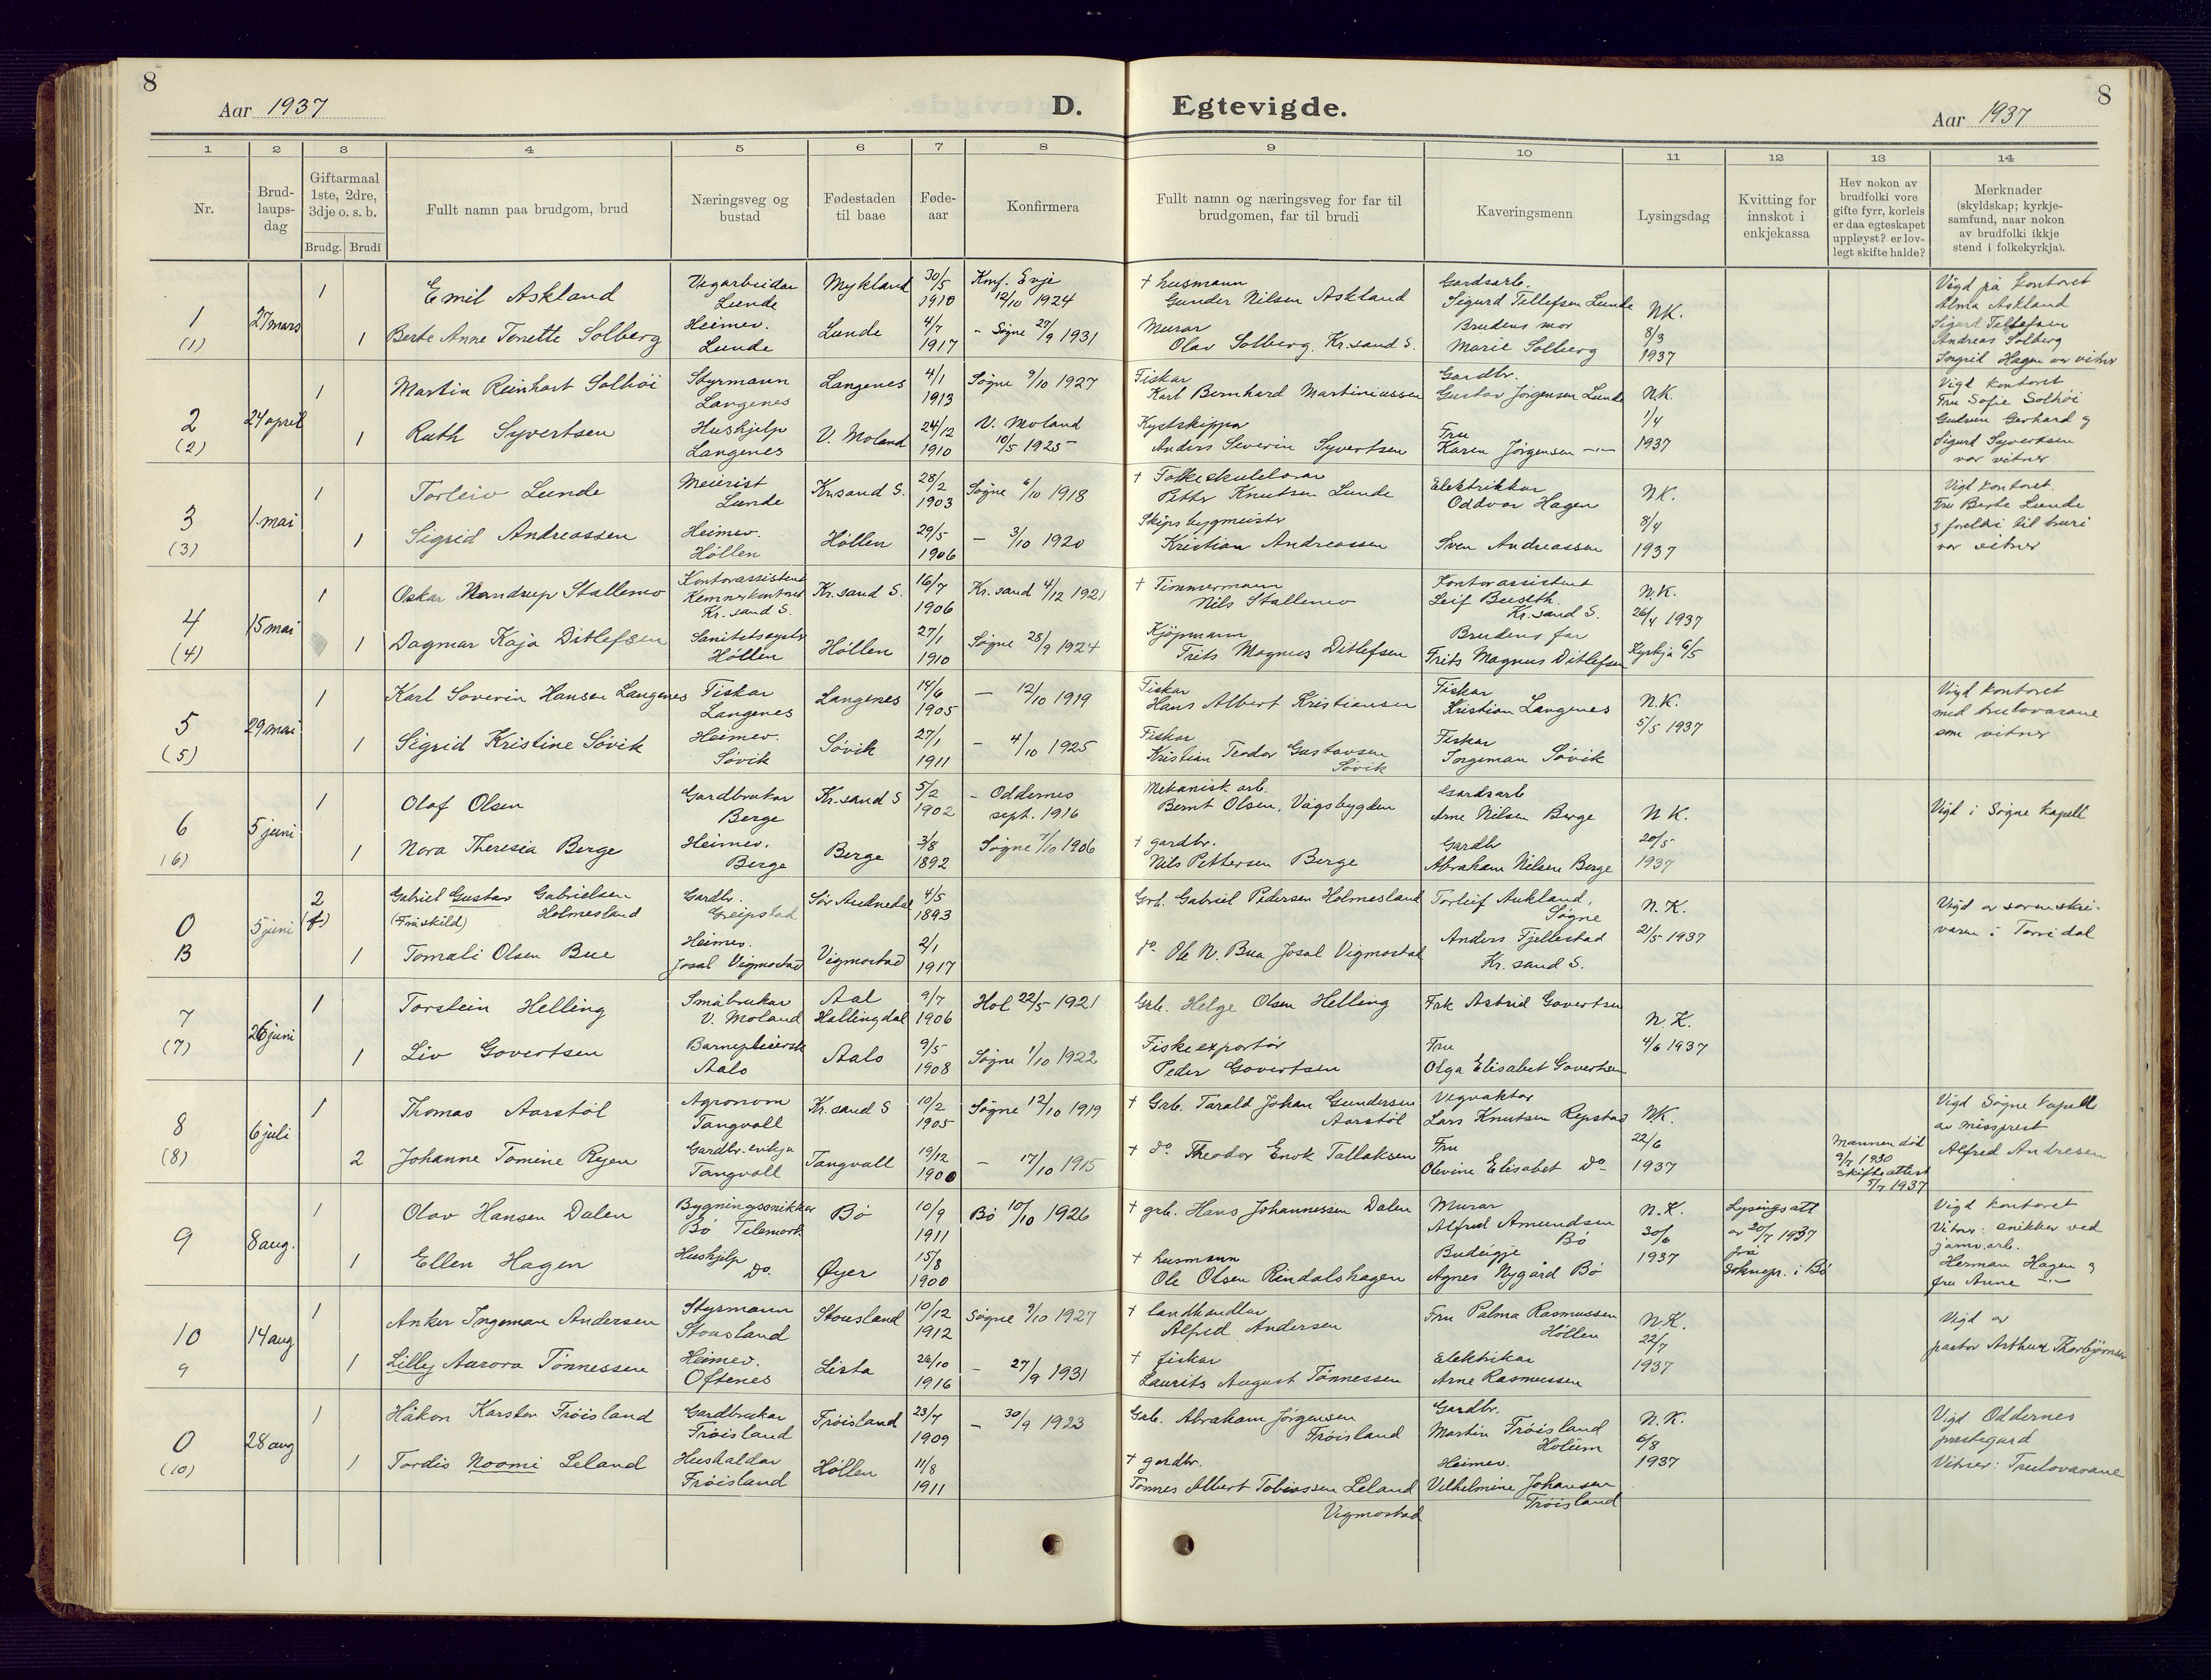 8
Aar 1937
D.
Egtevigde.
Aar 1937
8
1
2
3
4
5
6
7
8
9
10
11
12
13
14
Nr.
Brud-
laups-
dag
Giftarmaal
1ste, 2dre,
3dje o. s. b.
Brudg.
Brudi
Fullt namn paa brudgom, brud
Næringsveg og
bustad
Fødestaden
til baae
Føde-
aar
Konfirmera
Fullt namn og næringsveg for far til
brudgomen, far til brudi
Kaveringsmenn
Lysingsdag
Kvitting for
innskot i
enkjekassa
Hev nokon av
brudfolki vore
gifte fyrr, korleis
er daa egteskapet
uppløyst? er lov-
legt skifte halde?
Merknader
(skyldskap; kyrkje-
samfund, naar nokon
av brudfolki ikkje
stend i folkekyrkja).
1
(1)
27 mars
1
Emil Askland
Vegarbeidar
Lunde
Mykland
30/5
1910
Konf. Evje
12/10 1924
+ husmann
Gunder Nilsen Askland
Gardsarb.
Sigurd Tellefsen Lunde
1
Berte Anne Tonette Solberg
Heimev.
Lunde
Lunde
4/7
1917
- Søgne 27/9 1931
Murar
Olav Solberg, Kr.sand S.
Brudens mor
Marie Solberg
N.K.
8/3
1937
Vigd på kontoret
Alma Askland
Sigurd Tellefsen
Andreas Solberg
Ingrid Hagen var vitner
2
(2)
24 april
1
Martin Reinhart Solhöi
Styrmann
Langenes
Langenes
4/1
1913
Søgne 9/10 1927
Fiskar
Karl Bernhard Martiniussen
Gardbr.
Gustav Jørgensen Lunde
1
Ruth Syvertsen
Hushjelp
Langenes
V. Moland
24/12
1910
V. Moland
10/5 1925
Kystskippar
Anders Severin Syvertsen
Fru
Karen Jørgensen -"-
N.K.
1/4
1937
Vigd kontoret
Fru Sofie Solhöi
Gudrun Gerhard g
Sigurd Syvertsen
var vitner
3
(3)
1. mai
1
Torleiv Lunde
Meierist
Lunde
Kr.sand S.
28/2
1903
Søgne 6/10 1918
+ Folkeskulelærar
Petter Knutsen Lunde
Elektrikkar
Oddvar Hagen
1
Sigrid Andreassen
Heimev.
Høllen
Høllen
29/5
1906
- 3/10 1920
Skipsbygmeistr
Kristian Andreassen
Sven Andreassen
N.K.
8/4
1937
Vigd kontoret.
Fru Berte Lunde
g foreldri til bruri
var vitner
4
(4)
15 mai
1
Oskar Stallemo
Kontorassistent
Kemnerkontoret
Kr.sand S.
Kr.sand S.
16/7
1906
Kr.sand 4/12 1921
+ Timmermann
Nils Stallemo
Kontorassistent
Leif Buseth.
Kr.sand S.
1
Dagmar Kaja Ditlefsen
Sanitetssystr
Høllen
Høllen
27/1
1910
Søgne 28/9 1924
Kjøpmann
Frits Magnus Ditlefsen
Brudens far
Frits Magnus Ditlefsen
N.K.
26/4 1937
Kyrkja 6/5
5
(5)
29 mai
1
Karl Soverin Hansen Langenes
Fiskar
Langenes
Langenes
14/6
1905
- 12/10 1919
Fiskar
Hans Albert Kristiansen
Fiskar
Kristian Langenes
1
Sigrid Kristine Søvik
Heimev.
Søvik
Søvik
27/1
1911
- 4/10 1925
Fiskar
Kristian Teodor Gustavsen
Søvik
Fiskar
Ingeman Søvik
N.K.
5/5 1937
Vigd kontoret
med trulovarane
som vitner
6
(6)
5 juni
1
Olaf Olsen
Gardbrukar
Berge
Kr.sand S
5/2
1902
- Oddernes
sept. 1916
Mekanisk. arb.
Bernt Olsen, Vågsbygden
Gardsarb
Arne Nilsen Berge
1
Nora Theresia Berge
Heimev.
Berge
Berge
3/8
1892
Søgne 7/10 1906
+ gardbr.
Nils Pettersen Berge
Gardbr
Abraham Nilsen Berge
N K.
20/5
1937
Vigd i Søgne kapell
0
B
5 juni
2
Gabriel Gustav Gabrielsen
(Fråskild) Holmesland
Gardbr.
Greipstad
Sør Audnedal
4/5
1893
Grb. Gabriel Pedersen Holmesland
Torleif Aukland,
Søgne
1
Tomali Olsen Bue
Heimev.
Josal Vigmostad
Vigmostad
2/1
1917
do Ole N. Bua Josal Vigmostad
Anders Fjellestad
Kr.sand S.
N.K.
21/5 1937
Vigd av sorenskri-
varen i Torridal
7
(7)
26 juni
1
Torstein Helling
Småbrukar
V. Moland
Aal
Hallingdal
9/7
1906
Hol 22/5 1921
Grb. Helge Olsen Helling
Frk Astrid Govertsen
1
Liv Govertsen
Aalo
Aalo
9/5
1908
Søgne 1/10 1922
Fiskeexportør
Peder Govertsen
Fru
Olga Elisabet Govertsen
N.K.
4/6 1937
8
(8)
6 juli
1
Thomas Aarstöl
Agronom
Tangvall
Kr.sand S
10/2
1905
Søgne 12/10 1919
+ Grb. Tarald Johan Gundersen
Aarstöl
Vegvaktar
Lars Knutsen Repstad
2
Johanne Tomine Rejen
Gardbr. enkja
Tangvall
Tangvall
19/12
1900
- 17/10 1915
+ do Theodor Enok Tallaksen
Fru
Olevine Elisabet do
N.K.
22/6
1937
Mannen död
9/7 1930
Skifteattest
5/7 1937
Vigd Søgne kapell
av missprest
Alfred Andresen
9
8 aug.
1
Olav Hansen Dalen
Bygningssnikkar
Bö Telemark
Bö
10/9
1911
Bö 10/10 1926
+ grb. Hans Johannessen Dalen
Murar
Alfred Amundsen
Bö
1
Ellen Hagen
Hushjelp
Do.
Øyer
15/8
1900
+ husmann
Ole Olsen Rindalshagen
Budeigje
Agnes Nygård Bö
N.K.
30/6
1937
Lysingsatt
av 20/7 1937
frå
Soknepr. i Bö
Vigd kontoret
Vitner: snikker ved
jarnv.arb.
Herman Hagen g
fru Anne -"-
10
9
14 aug
1
Anker Ingeman Andersen
Styrmann
Stousland
Stousland
10/12
1912
Søgne 9/10 1927
+ landhandlar
Alfred Andersen
Fru Palma Rasmussen
Høllen
1
Lilly Aurora Tönnessen
Heimev.
Oftenes
Lista
26/10
1916
- 27/9 1931
+ fiskar
Laurits August Tönnessen
Elektrikar
Arne Rasmussen
N.K.
22/7
1937
Vigd av
pastor Arthur Thorbjørnsen
0
(10)
28 aug
1
Håkon Karsten Fröisland
Gardbrukar
Fröisland
Fröisland
23/7
1909
- 30/9 1923
Grb. Abraham Jörgensen
Fröisland
Gardbr.
Martin Fröisland
Holum
1
Tordis Noomi Leland
Hushaldar
Fröisland
Høllen
11/8
1911
+ gardbr.
Tönnes Albert Tobiassen Leland
Vigmostad
Heimev.
Vilhelmine Johansen
Fröisland
N.K.
6/8
1937
Vigd Oddernes
prestegard
Vitner: Trulovarane